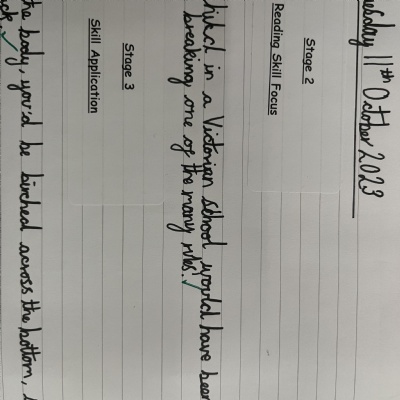 11th October 2023
Stage 2
Reading Skill Focus
in a Victorian school would have been
breaking one of the many rules.
Stage 3
Skill Application
the body, you'd be birched across the bottom,